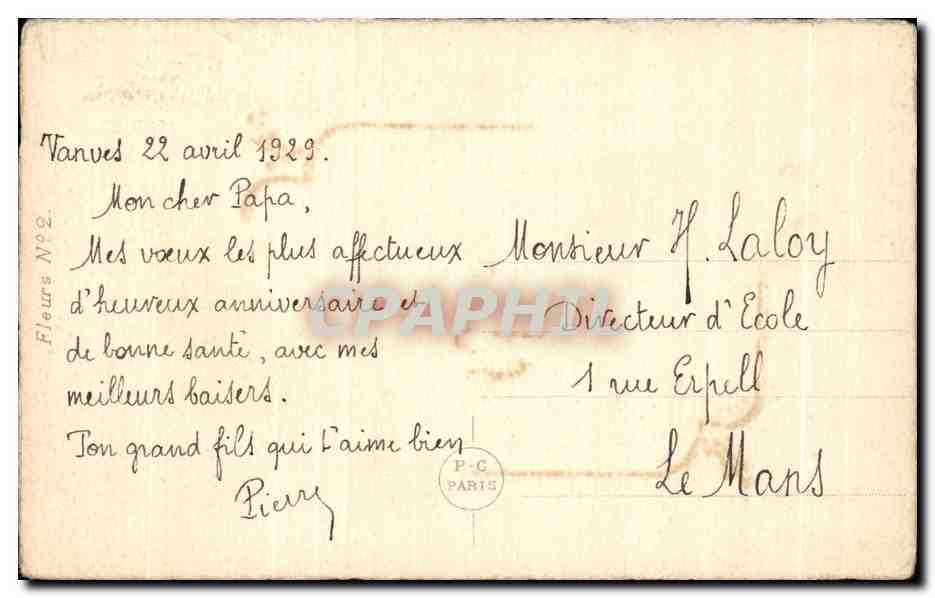 Vanves 22 avril 1929.
Mon cher Papa,
Mes vœux les plus affectueux
d'heureux anniversaire et
de bonne santé, avec mes
meilleurs baisers.
Ton grand fils qui t'aime bien
Pierre
Monsieur H. Laloy
Directeur d'Ecole
1 rue Erpell
Le Mans
Fleurs Nº 2.
P-C
PARIS
CPAPHIL